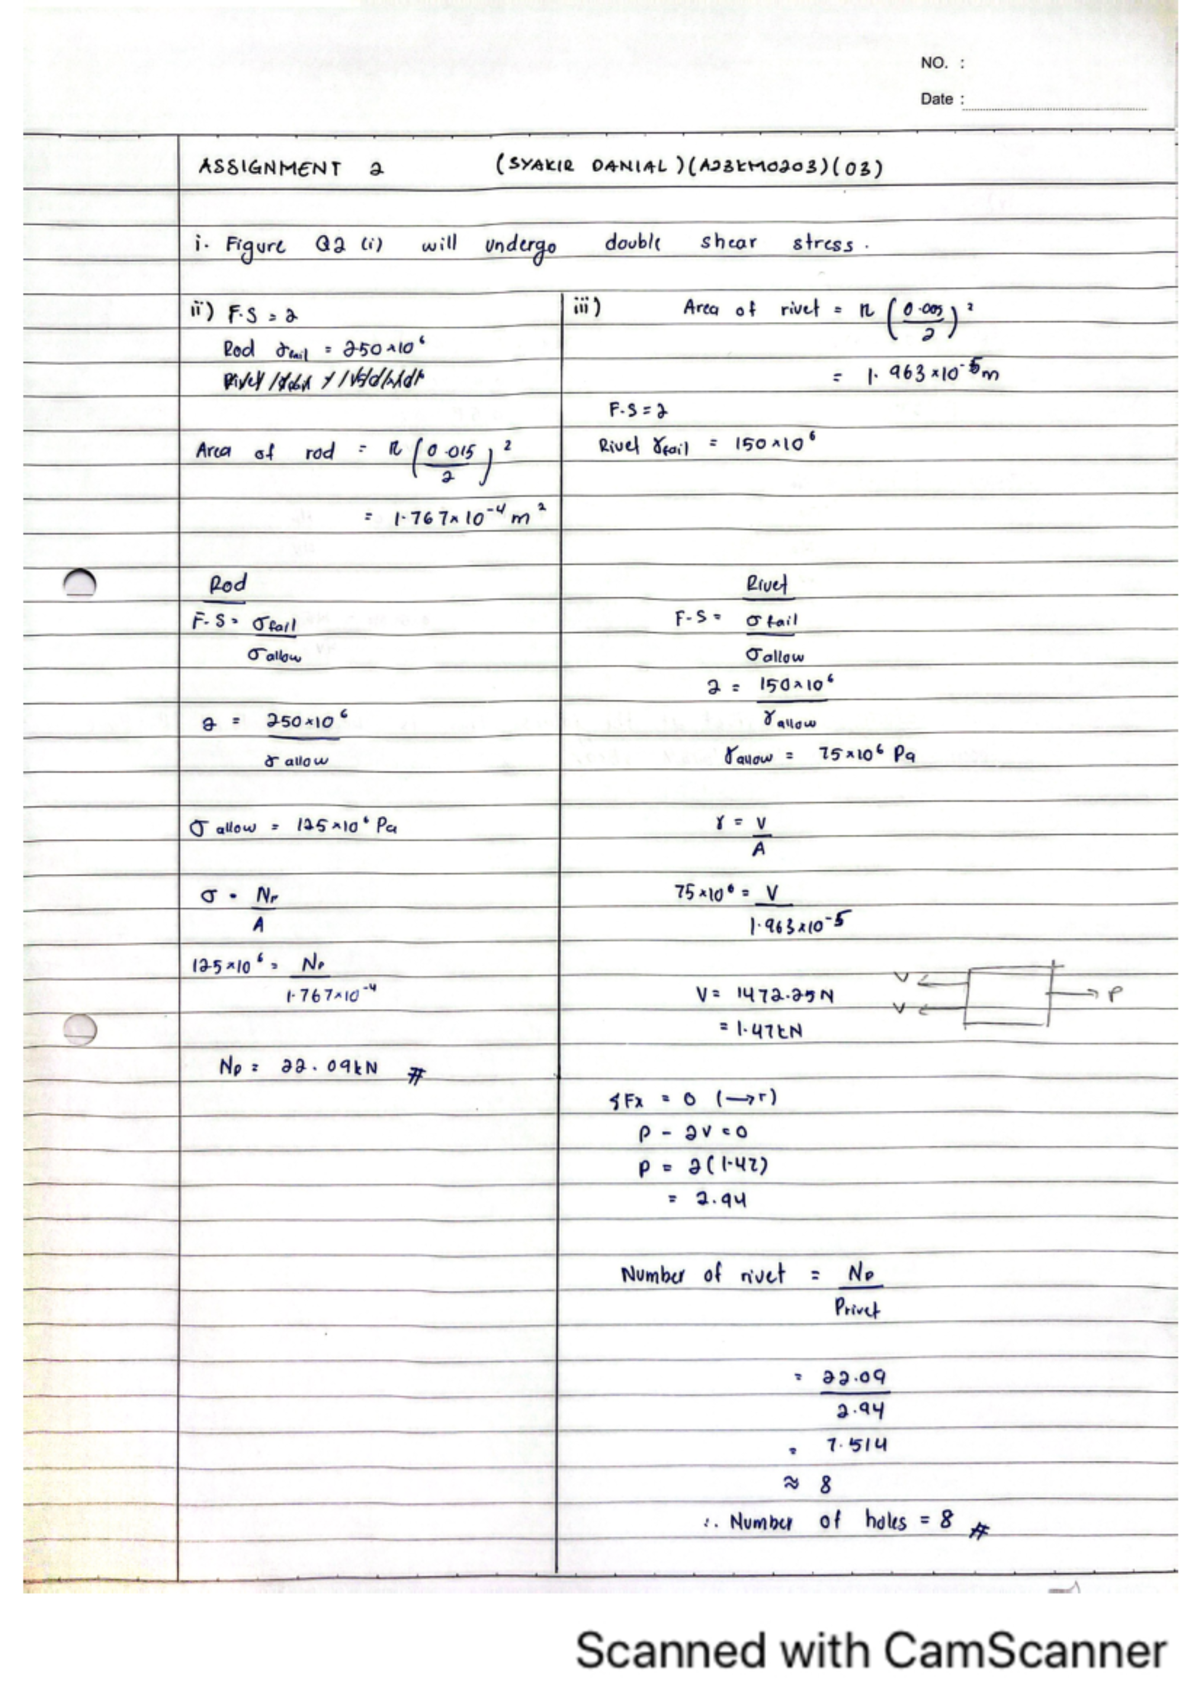 NO. :
Date :
ASSIGNMENT 2 (SYAKIR DANIAL)(A23KM0203)(03)
i. Figure Q2 (i) will undergo double shear stress.
ii) F.S = 2
Rod σfail = 250×10⁶
Area of rod = π (0.015/2)²
= 1.767×10⁻⁴ m²
Rod
F.S = σfail / σallow
2 = 250×10⁶ / σ allow
σ allow = 125×10⁶ Pa
σ = Np / A
125×10⁶ = Np / 1.767×10⁻⁴
Np = 22.09kN #
iii) Area of rivet = π (0.005/2)²
= 1.963×10⁻⁵m
F.S = 2
Rivet γfail = 150×10⁶
Rivet
F.S = σfail / σallow
2 = 150×10⁶ / γallow
γallow = 75×10⁶ Pa
γ = V / A
75×10⁶ = V / 1.963×10⁻⁵
V = 1472.25N
= 1.47kN
V
V
P
ΣFx = 0 (→+)
P - 2V = 0
P = 2(1.47)
= 2.94
Number of rivet = Np / Privet
= 22.09 / 2.94
= 7.514
≈ 8
∴ Number of holes = 8 #
Scanned with CamScanner